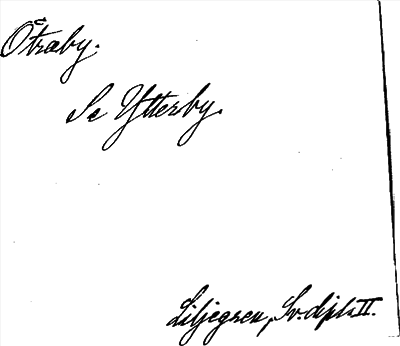 Otraby.
Se Ytterby.
Liljegren, Sv. dipl. II.